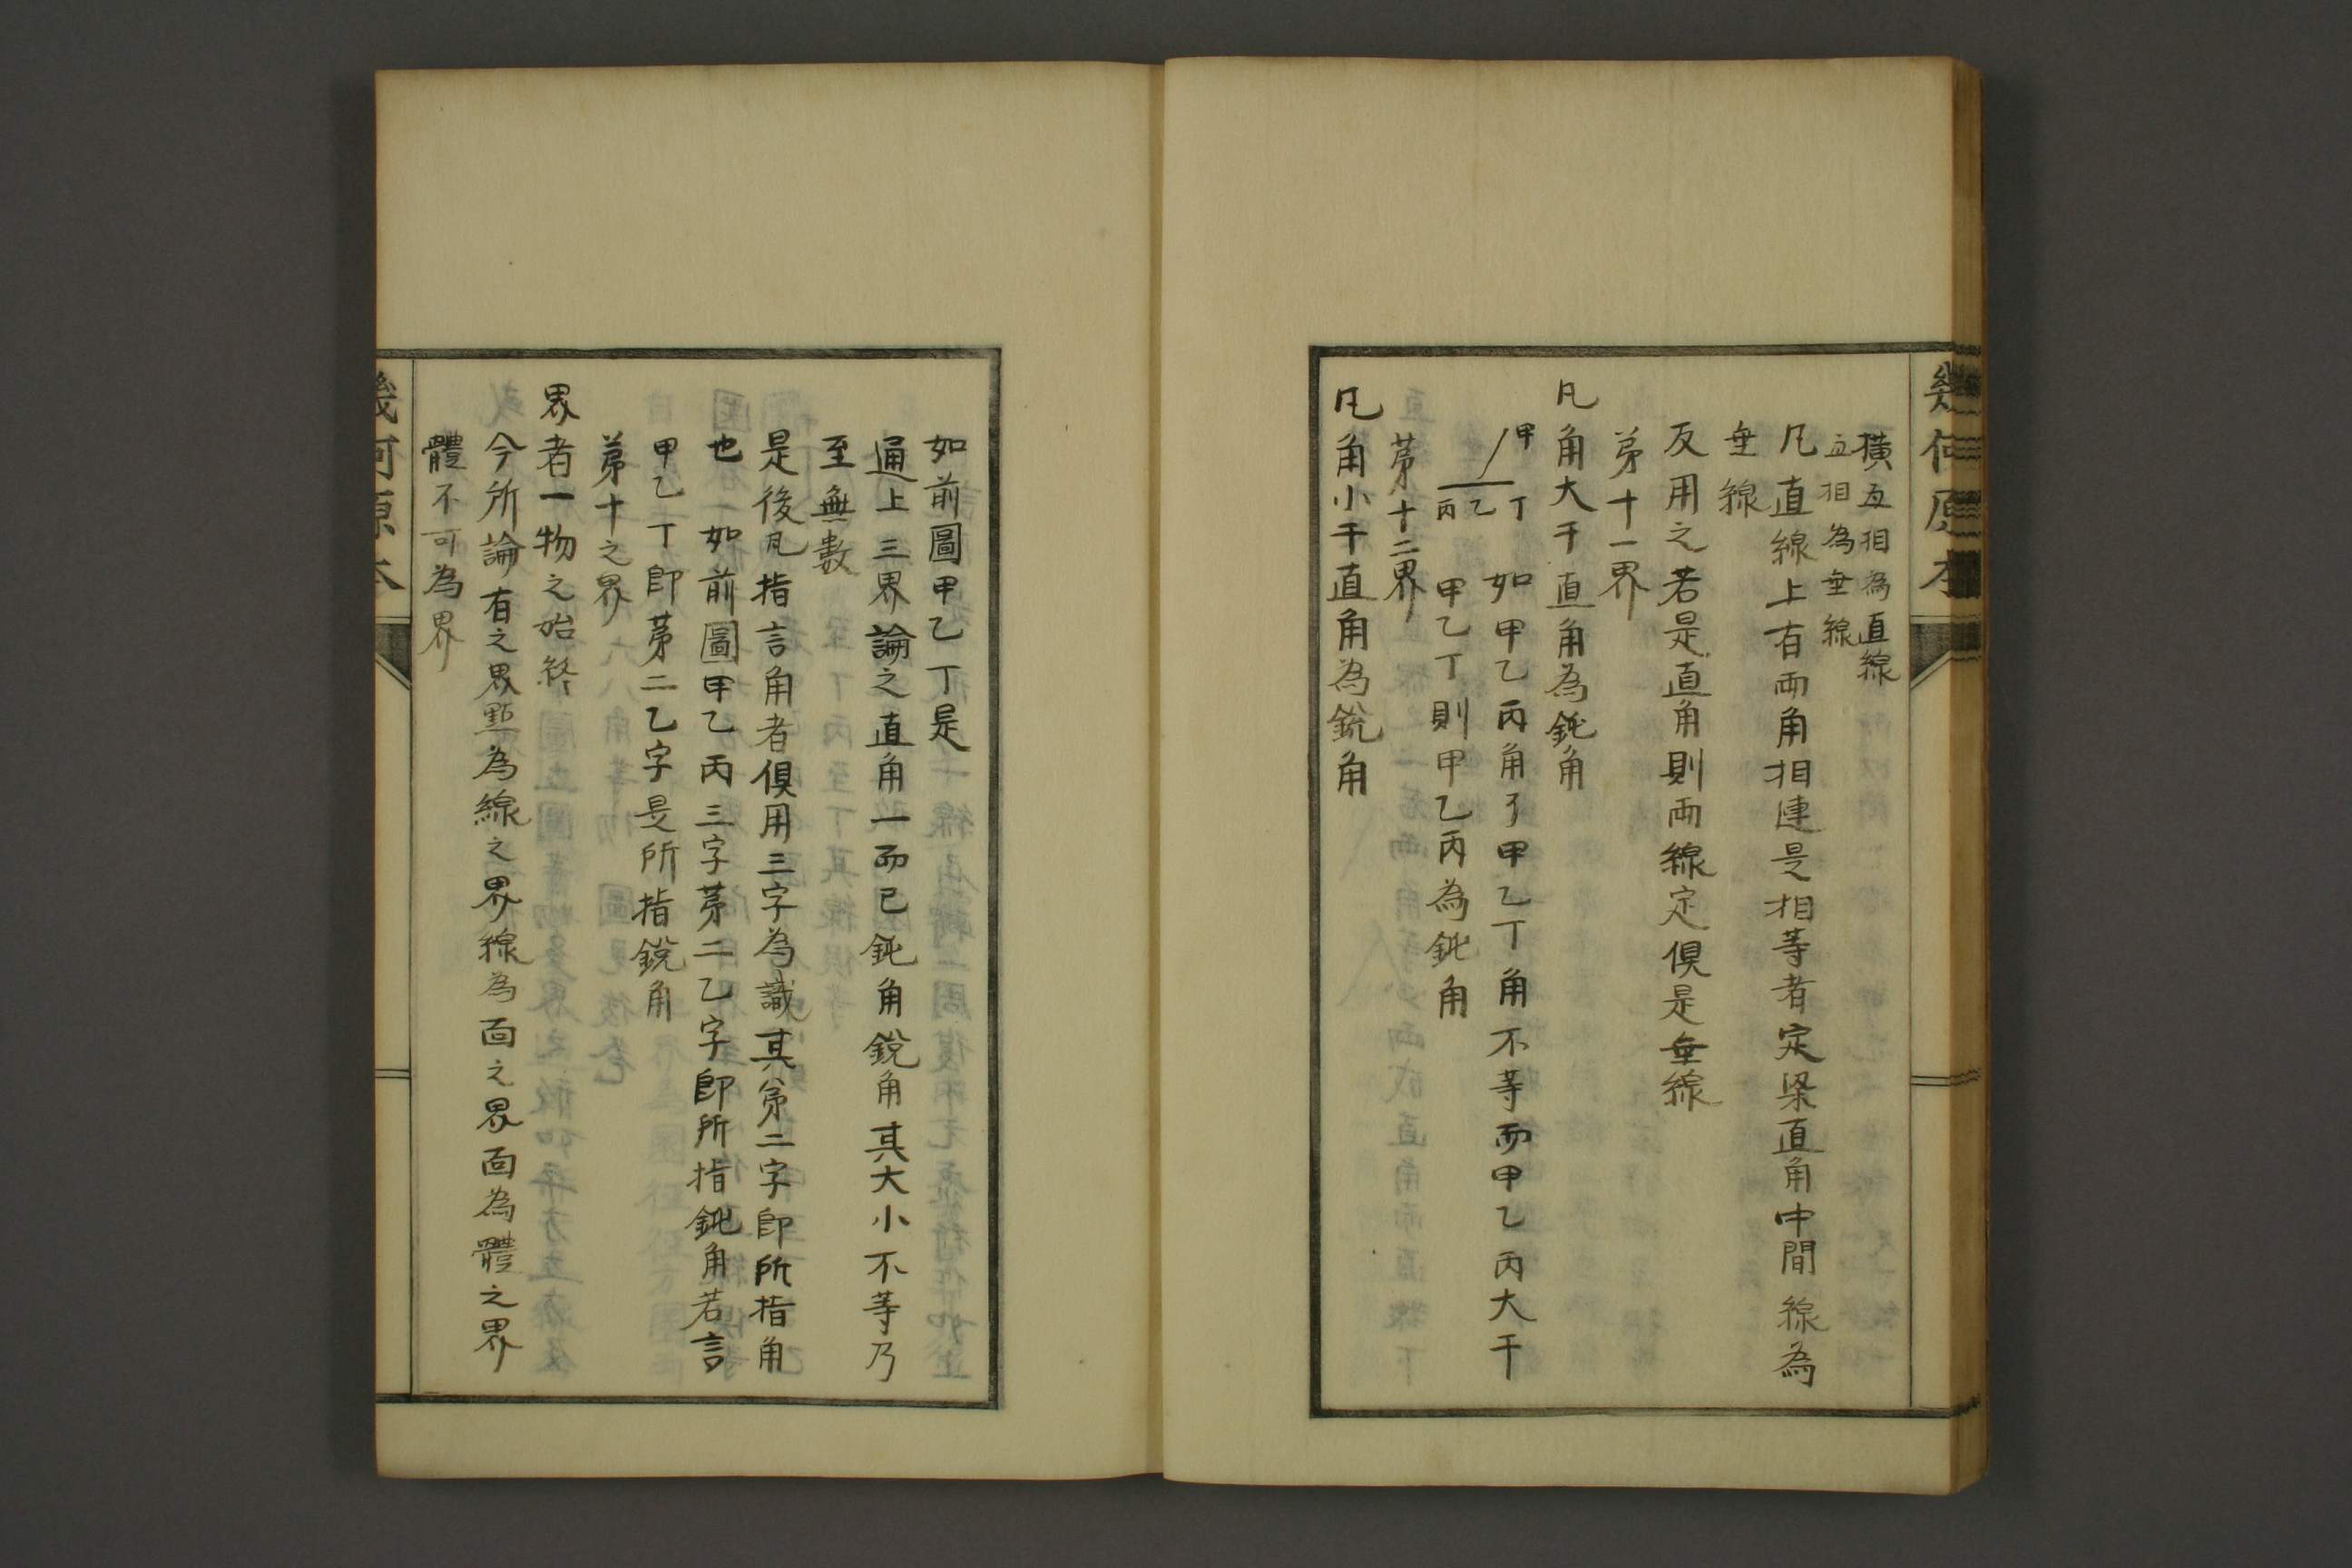 幾何原本
橫直相為直線
立相為垂線
凡直線上有兩角相連是相等者定梁直角中間線為
垂線
反用之若是直角則兩線定俱是垂線
第十一界
凡角大于直角為鈍角
甲
丁
乙
丙
如甲乙丙角了甲乙丁角不等而甲乙丙大于
甲乙丁則甲乙丙為鈍角
第十二界
凡角小于直角為銳角
如前圖甲乙丁是
通上三界論之直角一而已鈍角銳角其大小不等乃
至無數
是後凡指言角者俱用三字為識其第二字即所指角
也 如前圖甲乙丙三字第二乙字即所指鈍角若言
甲乙丁即第二乙字是所指銳角
第十之界
界者一物之始終
今所論有之界點為線之界線為面之界面為體之界
體不可為界
幾何原本